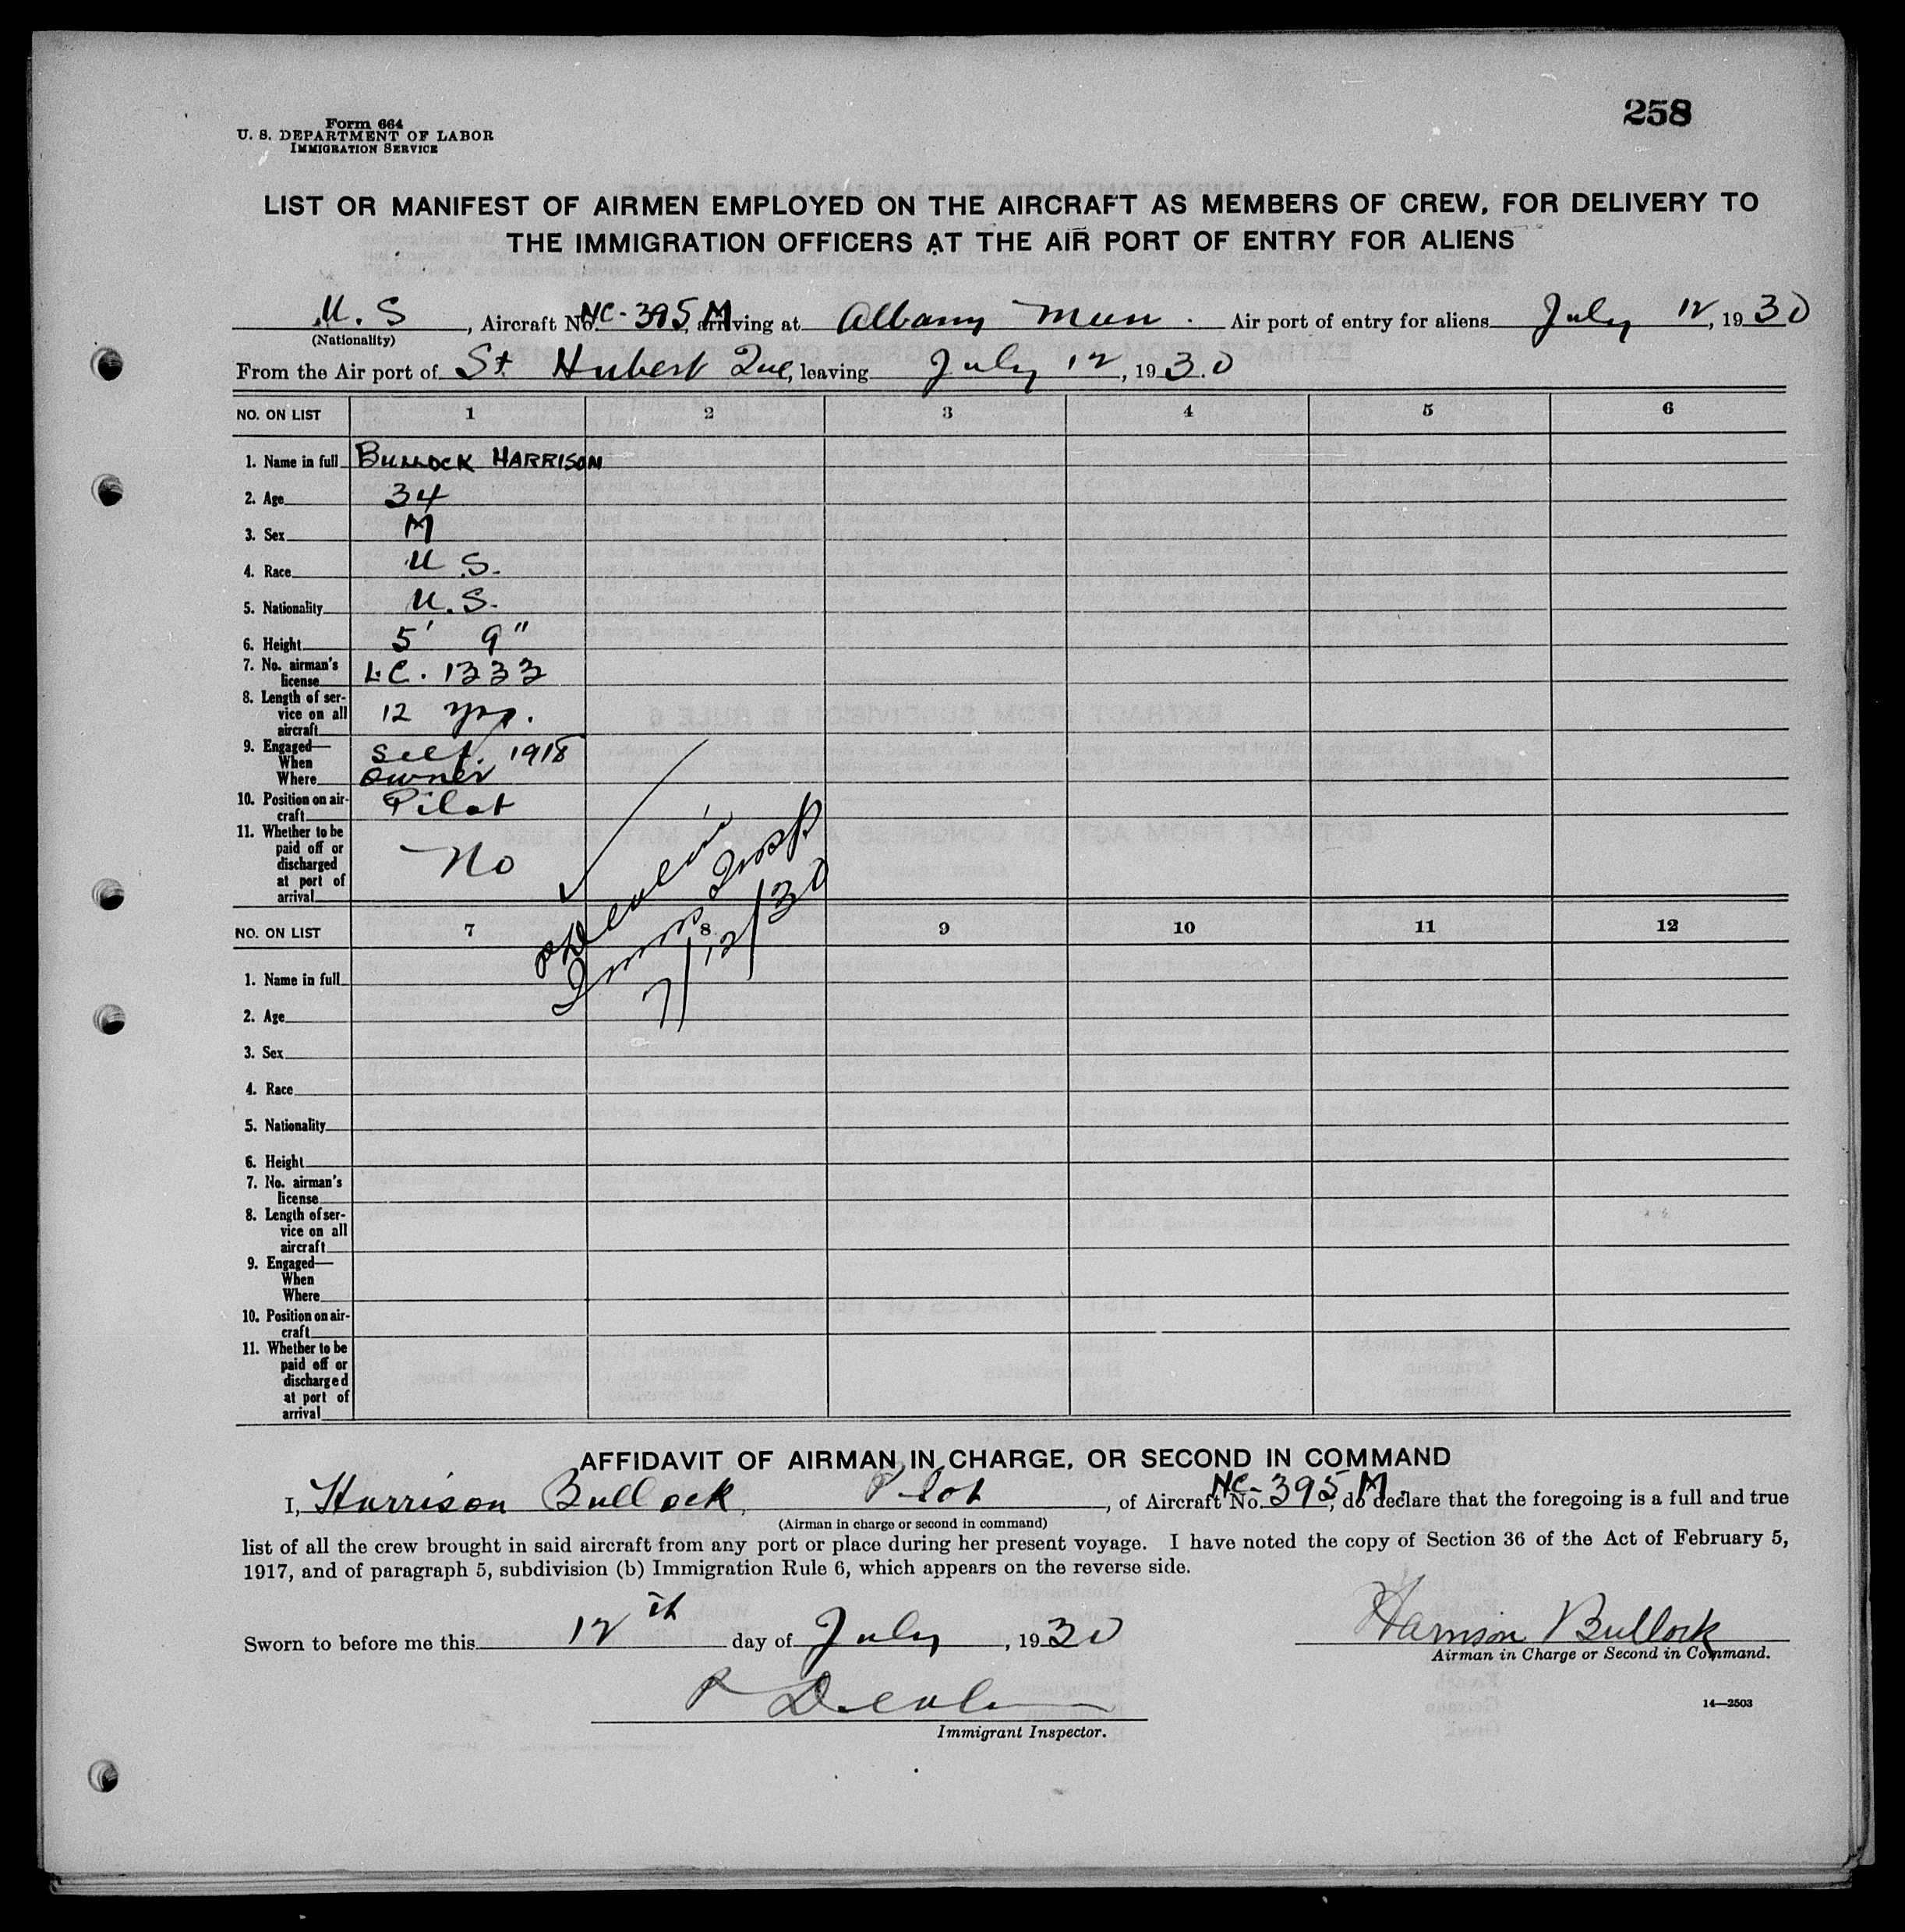 258
Form 664
U. S. DEPARTMENT OF LABOR
IMMIGRATION SERVICE
LIST OR MANIFEST OF AIRMEN EMPLOYED ON THE AIRCRAFT AS MEMBERS OF CREW, FOR DELIVERY TO
THE IMMIGRATION OFFICERS AT THE AIR PORT OF ENTRY FOR ALIENS
U. S, Aircraft No. NC-395M, arriving at Albany Mun. Air port of entry for aliens July 12, 1930
(Nationality)
From the Air port of St Hubert Que, leaving July 12, 1930
NO. ON LIST 1 2 3 4 5 6
1. Name in full BULLOCK HARRISON
2. Age 34
3. Sex M
4. Race U. S.
5. Nationality U. S.
6. Height 5' 9"
7. No. airman's
license L.C. 1333
8. Length of ser-
vice on all
aircraft 12 yrs.
9. Engaged—
When Self. 1918
Where owner
10. Position on air-
craft Pilot
11. Whether to be
paid off or
discharged
at port of
arrival No
Immig Insp
7/12/30
NO. ON LIST 7 8 9 10 11 12
1. Name in full
2. Age
3. Sex
4. Race
5. Nationality
6. Height
7. No. airman's
license
8. Length of ser-
vice on all
aircraft
9. Engaged—
When
Where
10. Position on air-
craft
11. Whether to be
paid off or
discharged
at port of
arrival
AFFIDAVIT OF AIRMAN IN CHARGE, OR SECOND IN COMMAND
I, Harrison Bullock, Pilot, of Aircraft No. NC-395M, do declare that the foregoing is a full and true
(Airman in charge or second in command)
list of all the crew brought in said aircraft from any port or place during her present voyage. I have noted the copy of Section 36 of the Act of February 5,
1917, and of paragraph 5, subdivision (b) Immigration Rule 6, which appears on the reverse side.
Sworn to before me this 12th day of July, 1930
Harrison Bullock
Airman in Charge or Second in Command.
14—2503
Immigrant Inspector.